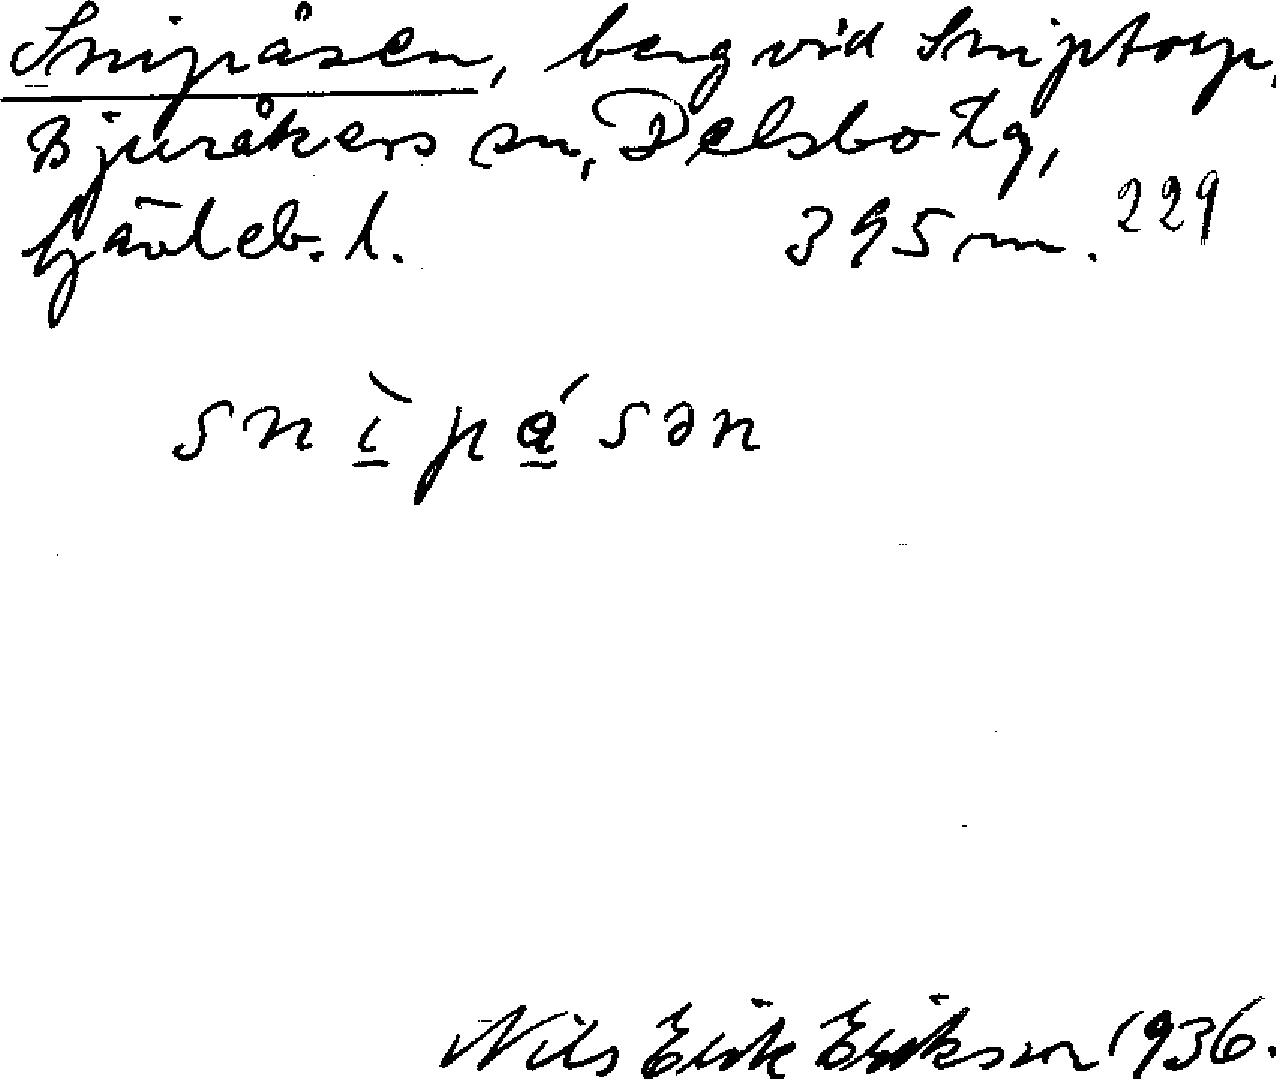 Snipåsen, berg vid Sniptorp,
Bjuråkers sn, Delsbo tg,
Gävleb. l. 395 m. 229
snı̱̀pá̱sən
Nils Erik Eriksson 1936.